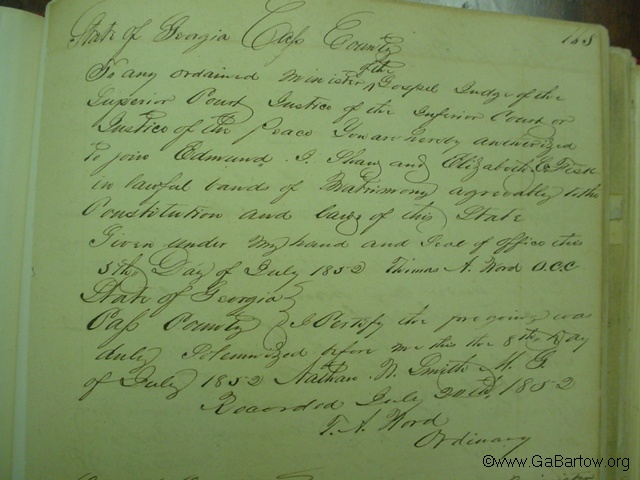 State of Georgia Cass County 168
To any ordained minister of the Gospel Judge of the
Superior Court Justice of the Inferior Court or
Justice of the Peace You are hereby authorized
to join Edmund J. Shaw and Elizabeth C Fisk
in lawful bands of Matrimony agreeably to the
Constitution and laws of this State
Given under my hand and Seal of office this
5th Day of July 1852 Thomas A. Word O.C.C
State of Georgia
Cass County } I Certify the foregoing was
duly Solemnized before me this the 8th Day
of July 1852 Nathan N. Smith M. G.
Recorded July 20th, 1852
T. A. Word
Ordinary
©www.GaBartow.org